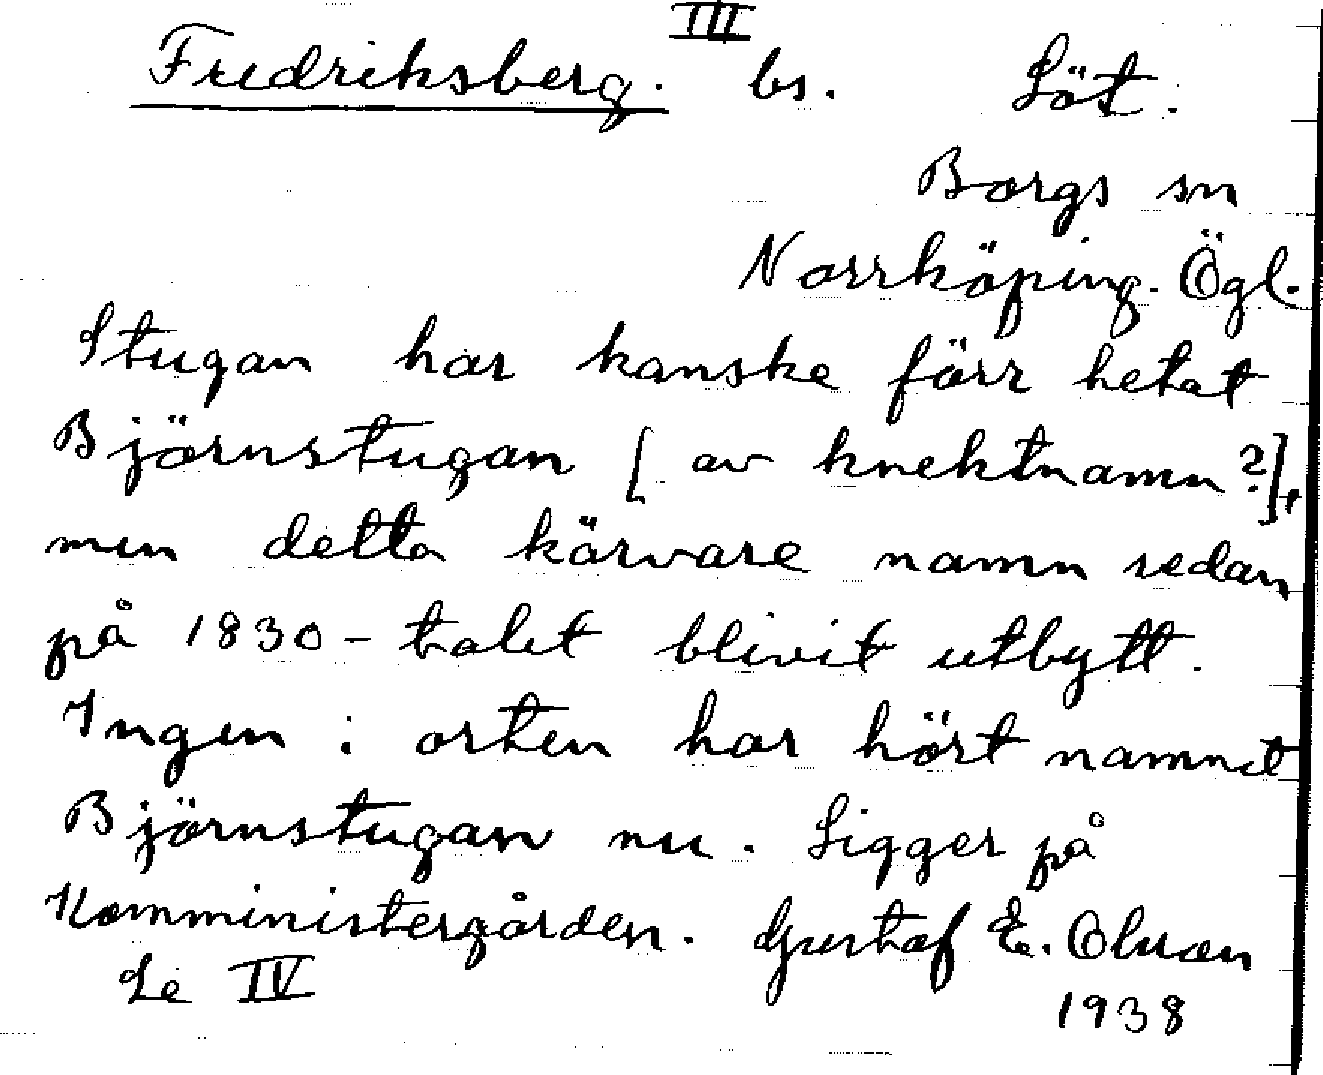 III
Fredriksberg. bs. Löt.
Borgs sn
Norrköping. Ögl.
Stugan har kanske förr hetat
Björnstugan [ av knektnamn?],
men detta kärvare namn sedan
på 1830-talet blivit utbytt.
Ingen i orten har hört namnet
Björnstugan nu. Ligger på
Komministergården. Gustaf E. Olsson
Se IV 1938